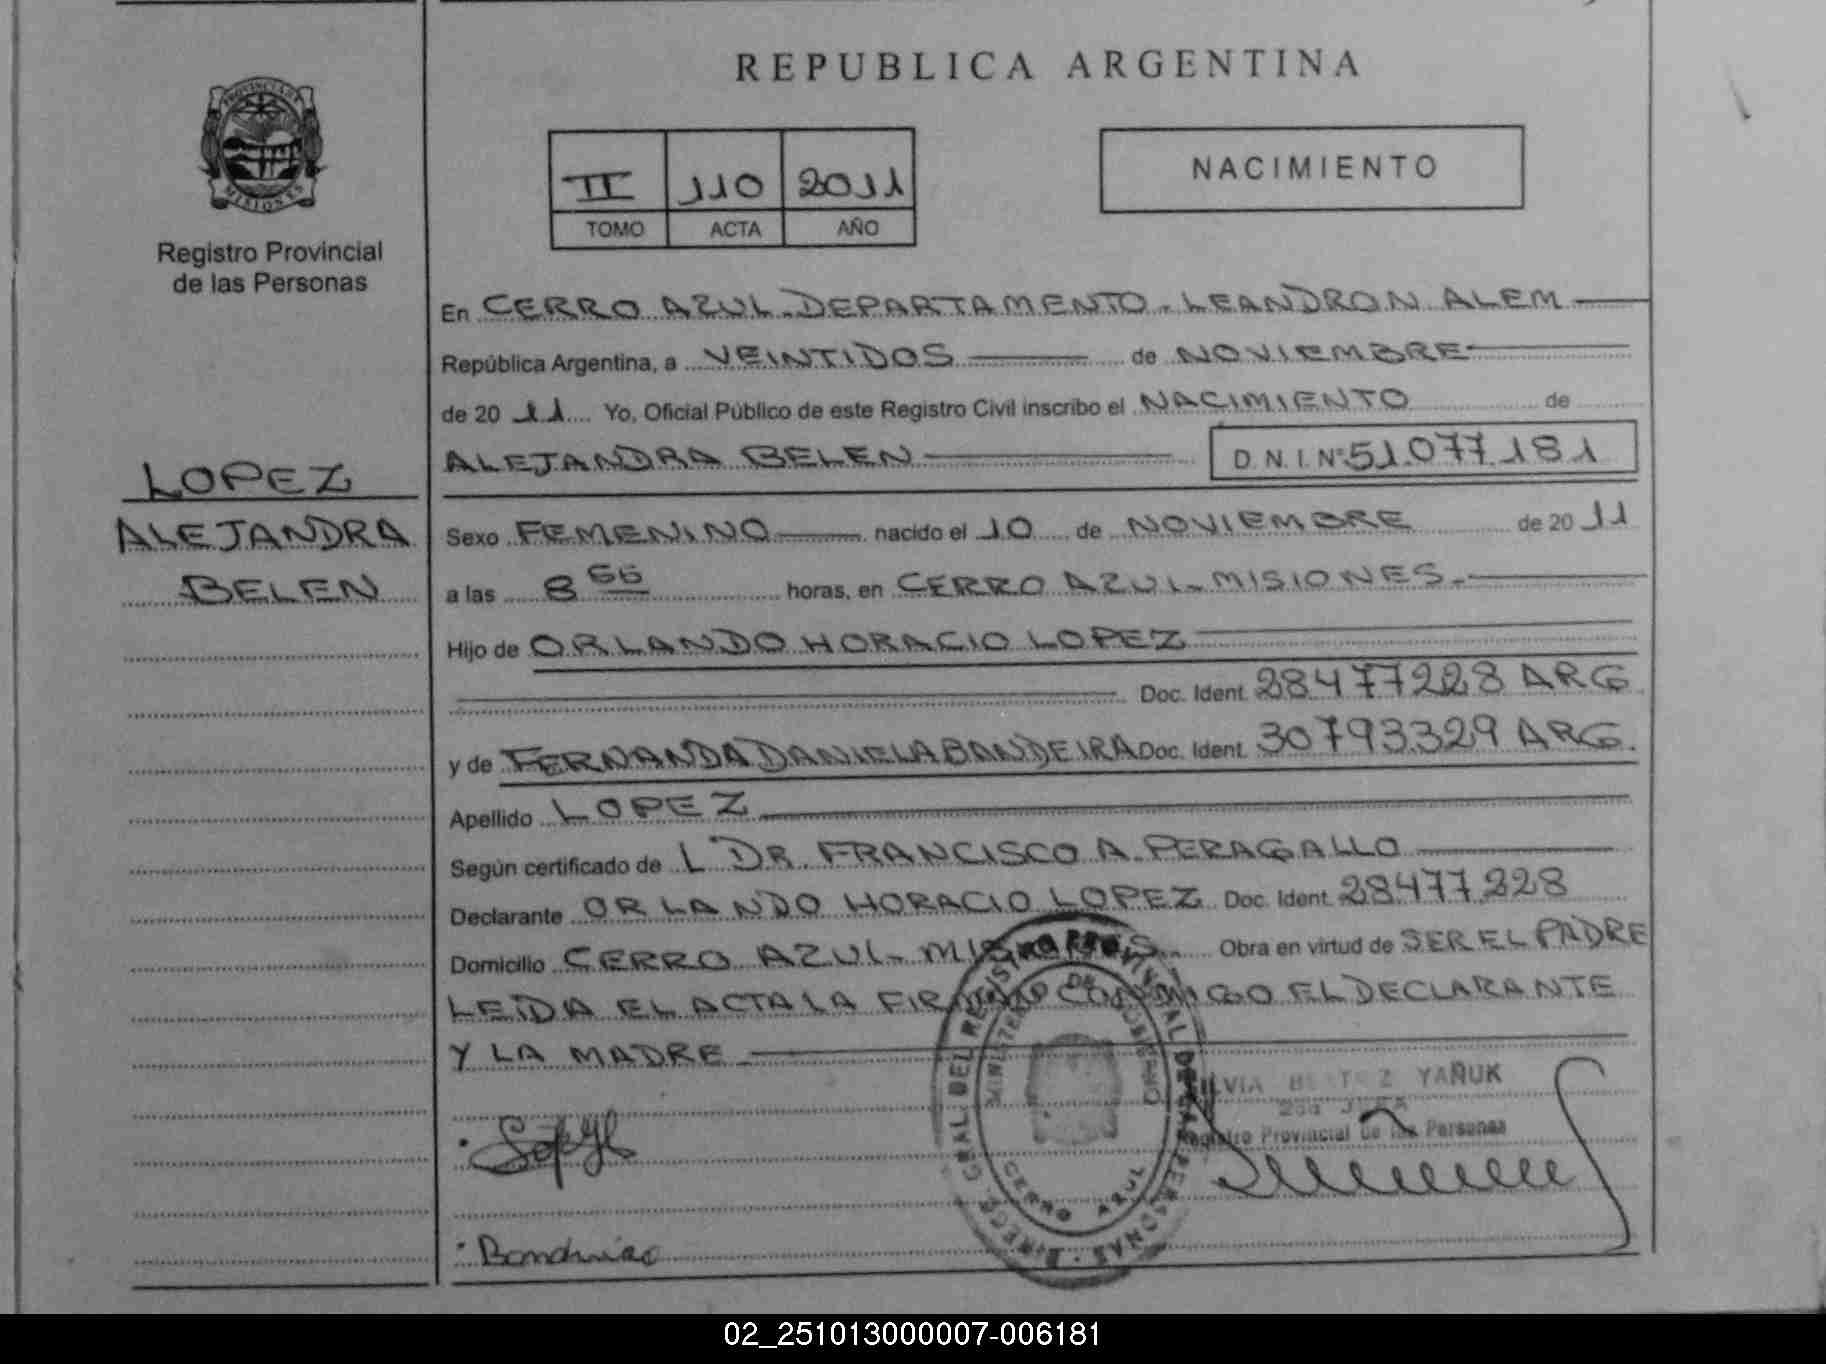 REPUBLICA ARGENTINA
PROVINCIA DE
MISIONES
Registro Provincial
de las Personas
II 110 2011
TOMO ACTA AÑO
NACIMIENTO
En CERRO AZUL. DEPARTAMENTO - LEANDRO N ALEM
República Argentina, a VEINTIDOS de NOVIEMBRE
de 20 11 Yo, Oficial Público de este Registro Civil inscribo el NACIMIENTO de
ALEJANDRA BELEN D.N.I.Nº 51.077.181
LOPEZ
ALEJANDRA
BELEN
Sexo FEMENINO nacido el 10 de NOVIEMBRE de 20 11
a las 8 horas, en CERRO AZUL - MISIONES.-
Hijo de ORLANDO HORACIO LOPEZ
Doc. Ident. 28477228 ARG
y de FERNANDA DANIELA BANDEIRA Doc. Ident. 30793329 ARG.
Apellido LOPEZ
Según certificado de L DR. FRANCISCO A. PERAGALLO
Declarante ORLANDO HORACIO LOPEZ Doc. Ident. 28.477.228
Domicilio CERRO AZUL - MISIONES Obra en virtud de SER EL PADRE
LEIDA EL ACTA LA FIRMAN CONMIGO EL DECLARANTE
Y LA MADRE
YAÑUK
Registro Provincial de las Personas
CERRO AZUL
02_251013000007-006181